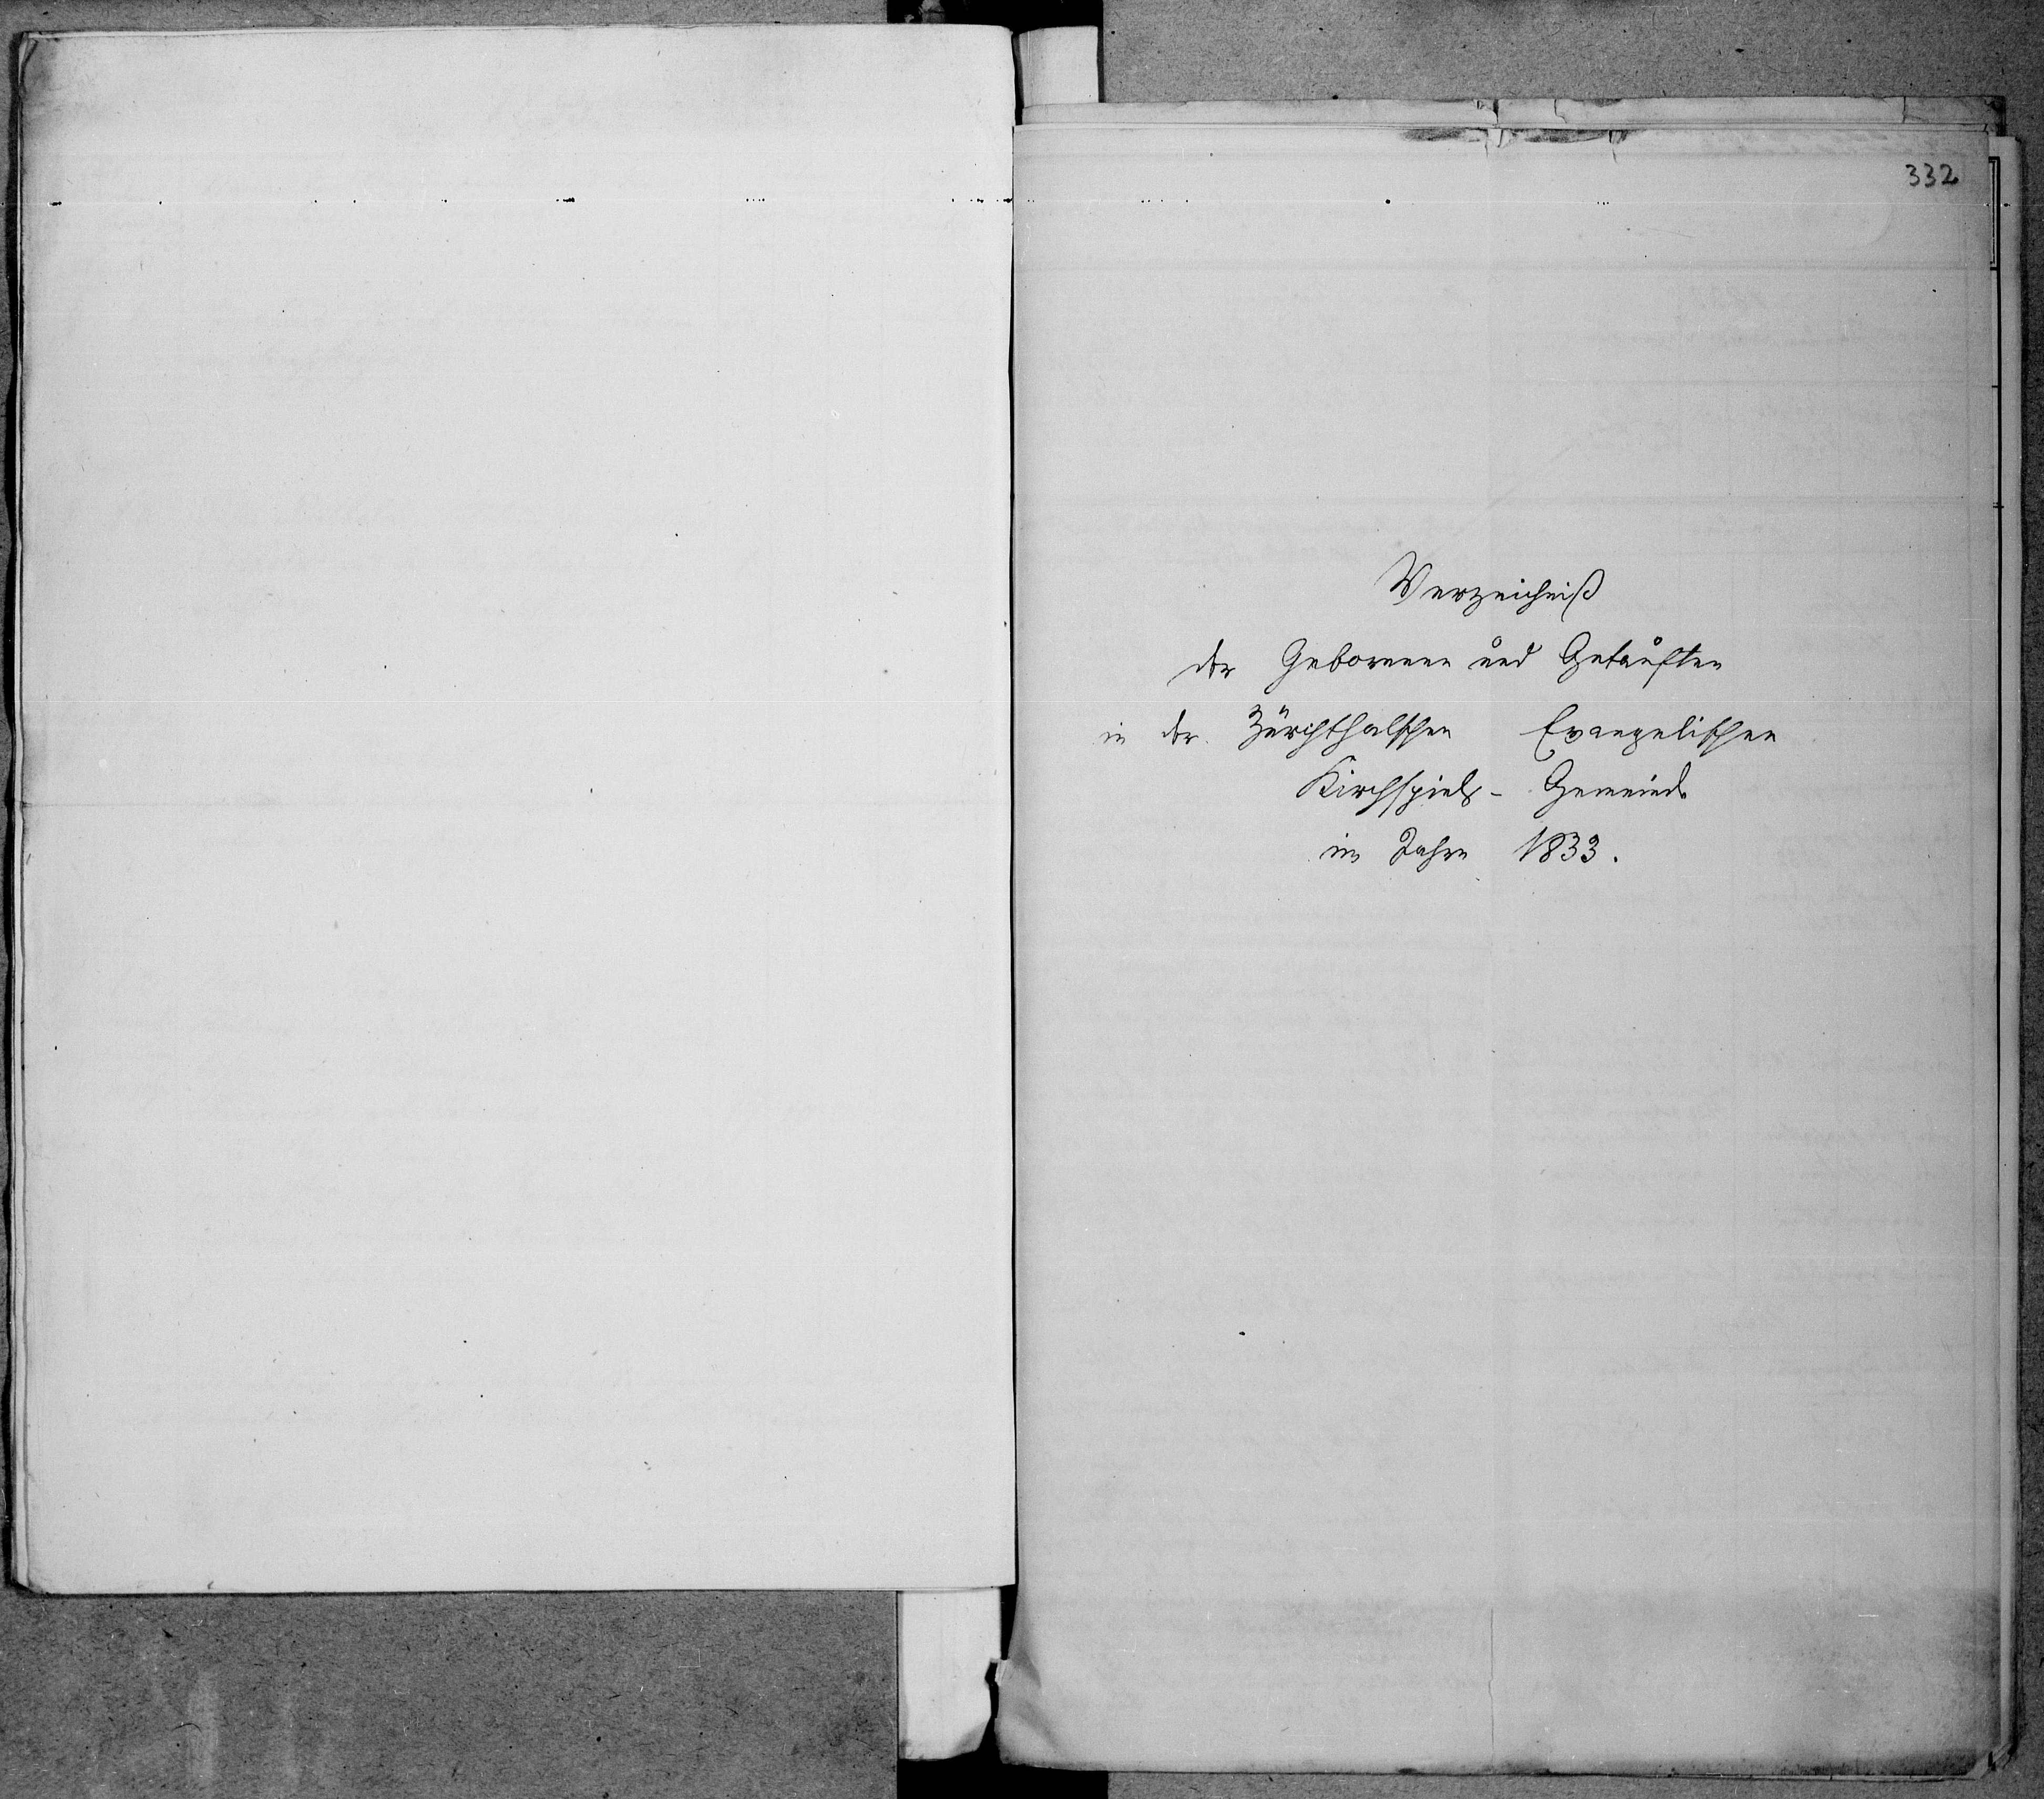 332
Verzeichniß
der Gebornen und Getauften
in der Zürichthalschen Evangelischen
Kirchspiels- Gemeinde
im Jahre 1833.